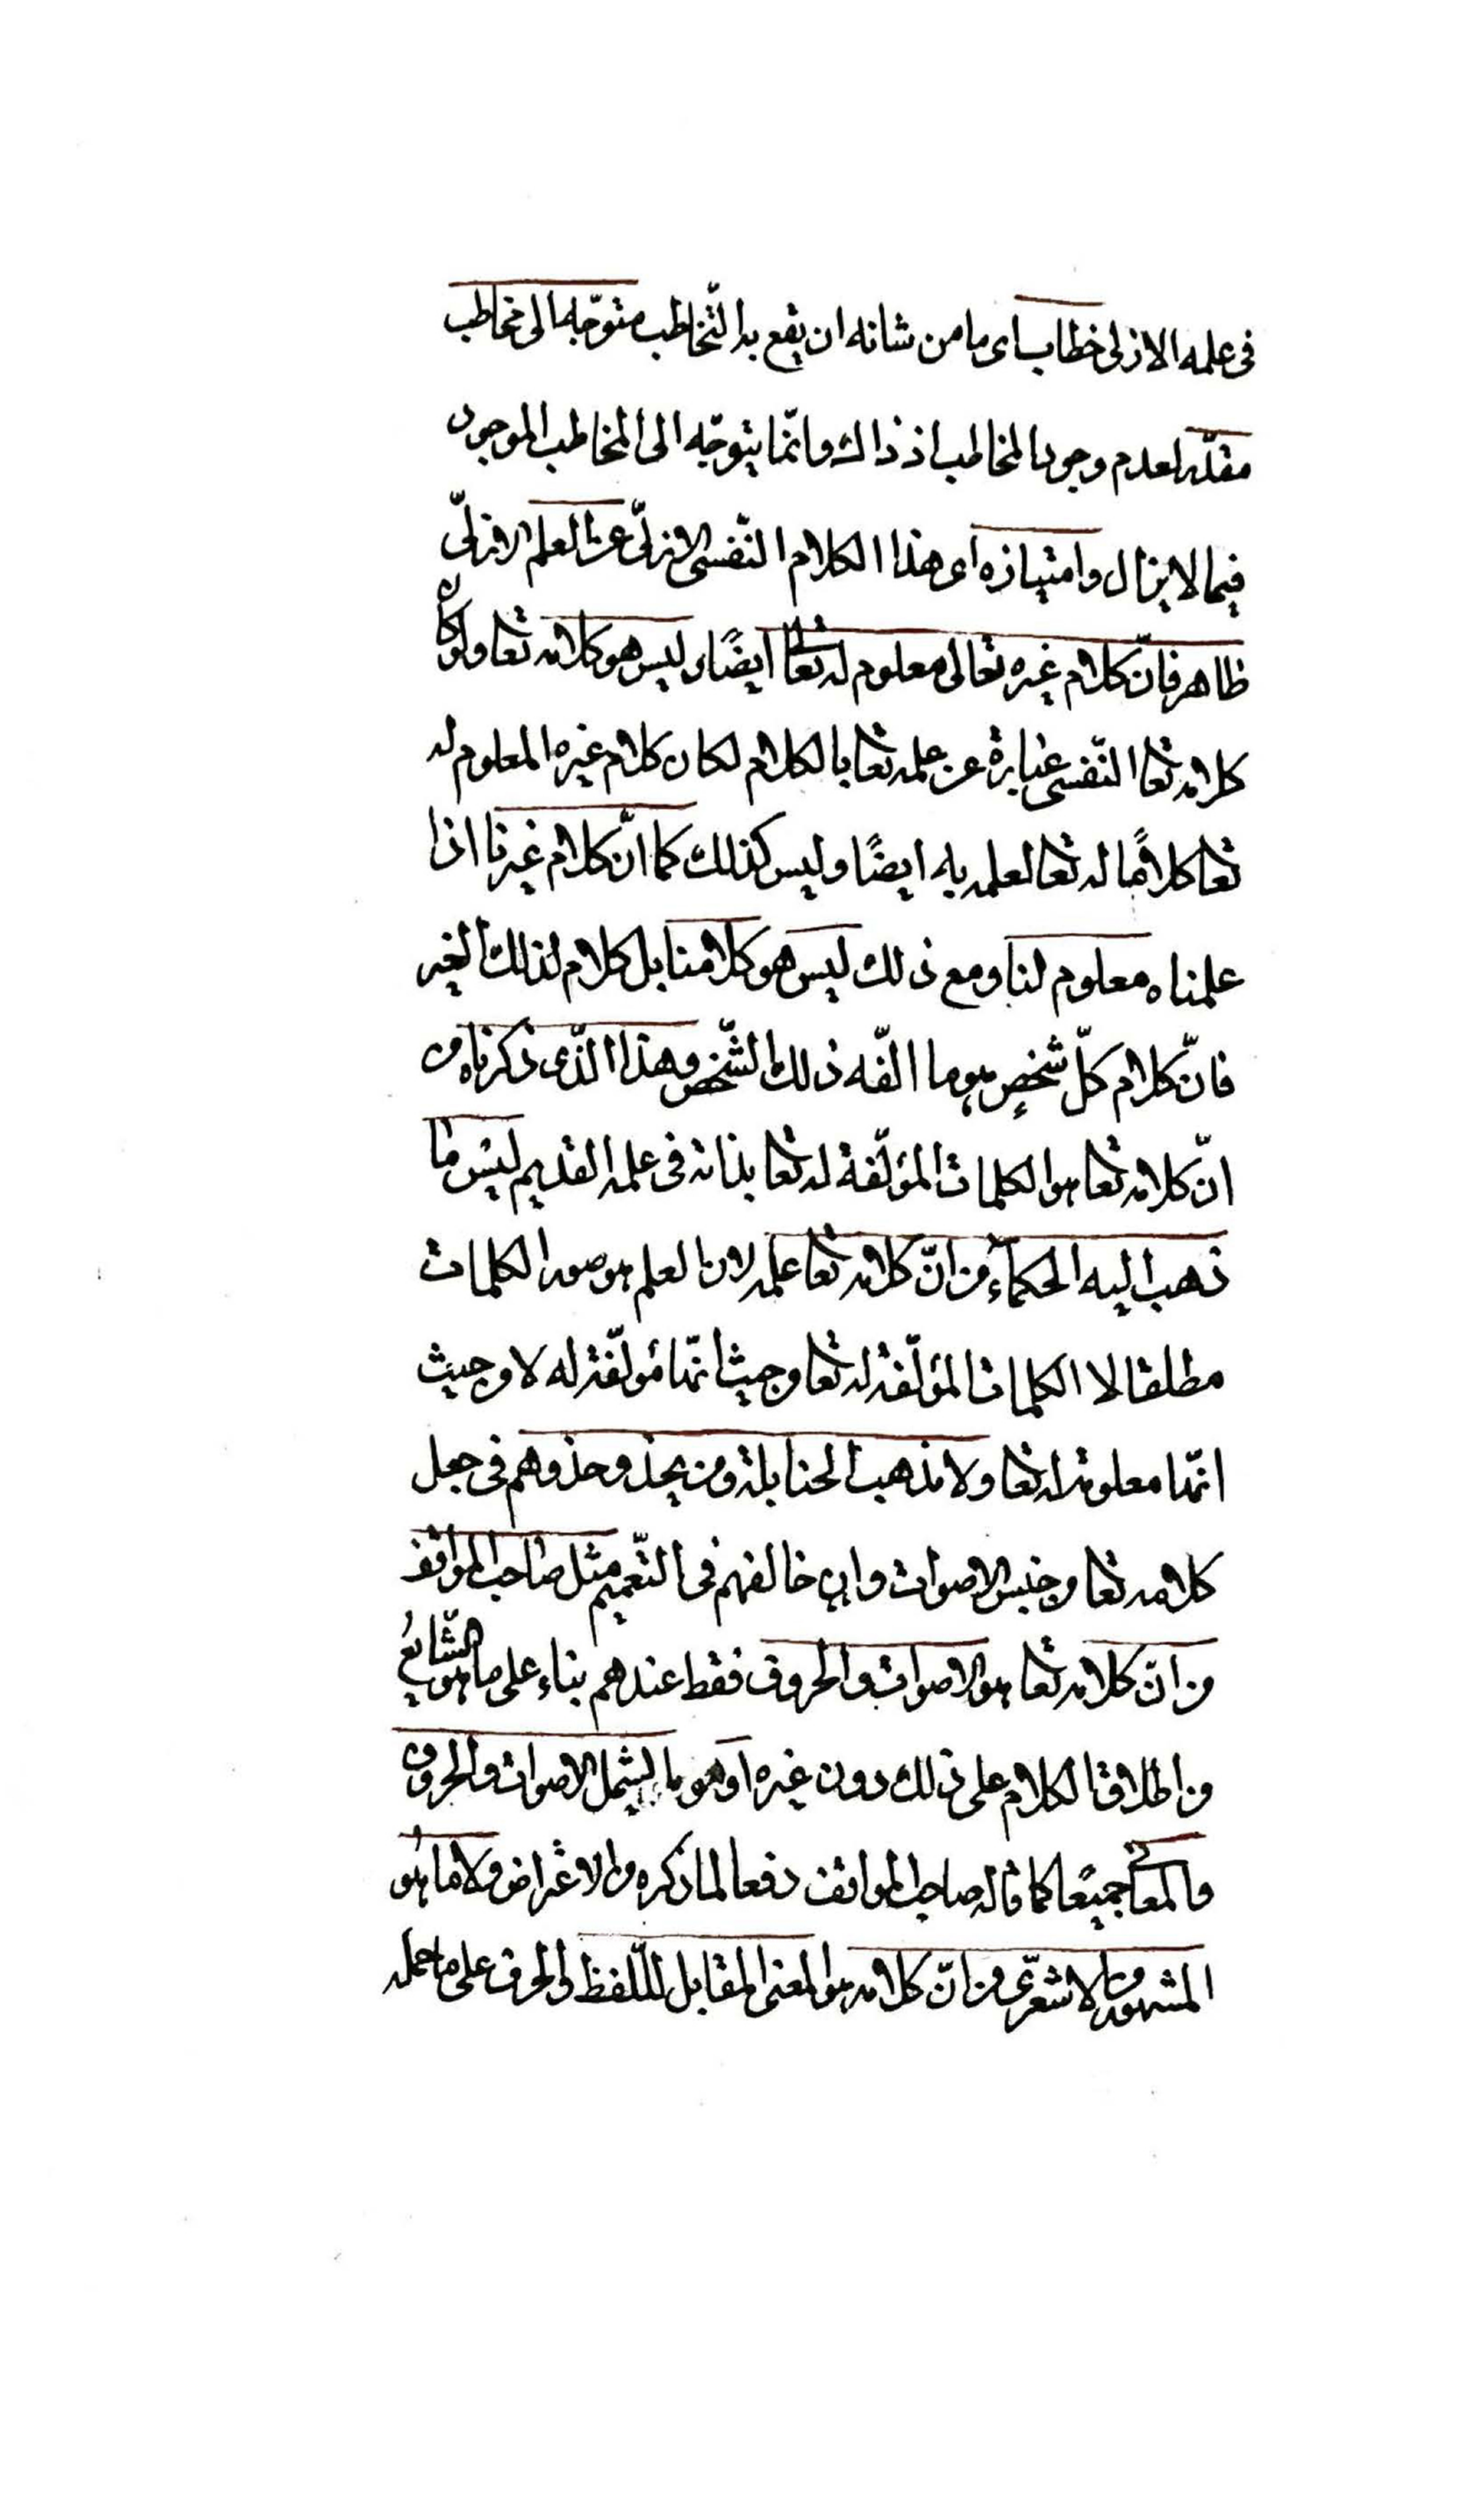 فى علمه الازلى خطاب اى ما من شانه ان يقع به التّخاطب متوجّه الى مخاطب
مقدّر لعدم وجود المخاطب اذ ذاك وانّما يتوجّه الى المخاطب الموجود
فيما لا يزال وامتيازه اى هذا الكلام النّفسى الازلىّ عن العلم الازلىّ
ظاهر فانّ كلام غيره تعالى معلوم له تعالى ايضًا وليس هو كلامه تعا ولو كان
كلامه تعا النّفسى عبارة عن علمه تعا بالكلام لكان كلام غيره المعلوم له
تعا كلامًا له تعا لعلمه به ايضًا وليس كذلك كما انّ كلام غيرنا اذا
علمناه معلوم لنا ومع ذلك ليس هو كلامنا بل كلام لذلك الغير
فانّ كلام كلّ شخصٍ هو ما الّفه ذلك الشّخص وهذا الّذى ذكرناه من
انّ كلامه تعا هو الكلمات المؤلّفة له تعا بذاته فى علمه القديم ليس ما
ذهب اليه الحكماء من انّ كلامه تعا علمه لان العلم هو صور الكلمات
مطلقا لا الكلمات المؤلّفة له تعا من حيث انّها مؤلّفة له لا من حيث
انّها معلومة له تعا ولا مذهب الحنابلة ومن يحذو حذوهم فى جعل
كلامه تعا من جنس الاصوات وان خالفهم فى التّعميم مثل صاحب المواقف
من انّ كلامه تعا هو الاصوات والحروف فقط عندهم بناء على ما هو الشّايع
من اطلاق الكلام على ذلك دون غيره او هو ما يشمل الاصوات والحروف
والمعانى جميعًا كما قاله صاحب المواقف دفعا لما ذكره من الاغراض ولا ما هو
المشهور من الاشعرىّ من انّ كلامه هو المعنى المقابل لللّفظ والحرف على ما حمله